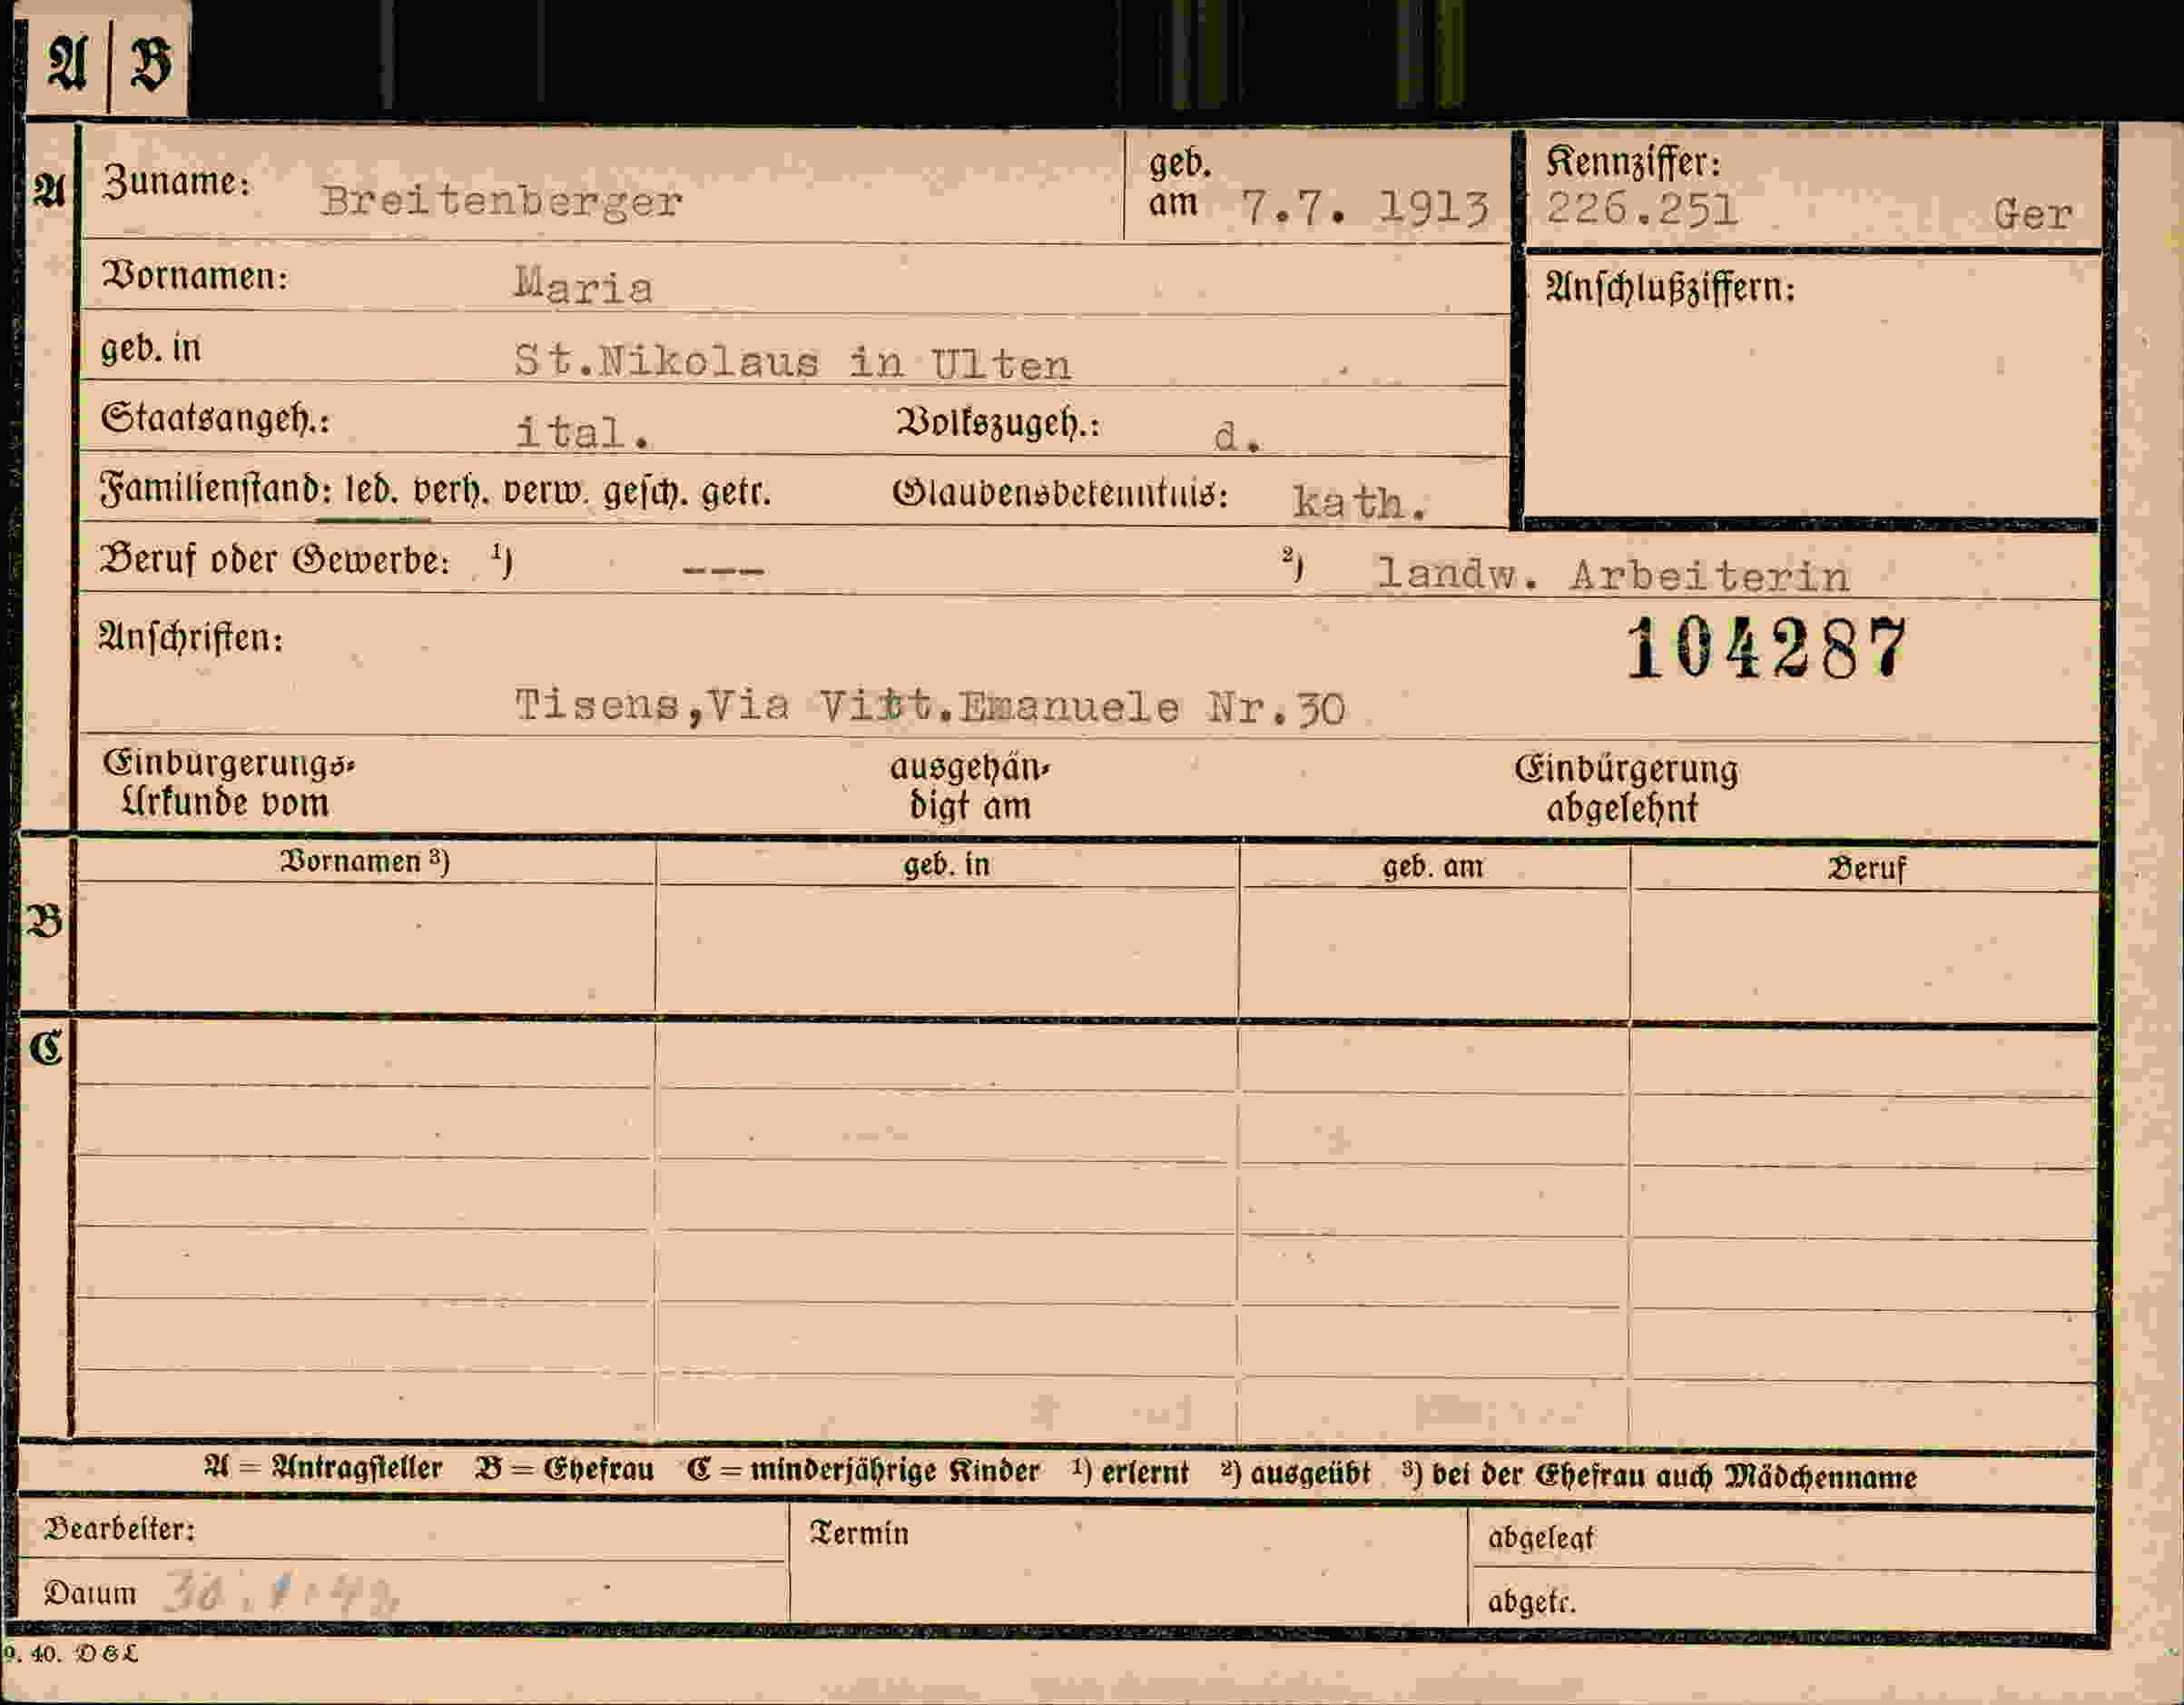 A | B
A Zuname: Breitenberger geb. am 7.7. 1913 Kennziffer: 226.251 Ger
Vornamen: Maria Anschlußziffern:
geb. in St.Nikolaus in Ulten
Staatsangeh.: ital. Volkszugeh.: d.
Familienstand: led. verh. verw. gesch. getr. Glaubensbekenntnis: kath.
Beruf oder Gewerbe: ¹) --- ²) landw. Arbeiterin
Anschriften: 104287
Tisens,Via Vitt.Emanuele Nr.30
Einbürgerungs- ausgehän- Einbürgerung
Urkunde vom digt am abgelehnt
Vornamen ³) geb. in geb. am Beruf
B
C
A = Antragsteller B = Ehefrau C = minderjährige Kinder ¹) erlernt ²) ausgeübt ³) bei der Ehefrau auch Mädchenname
Bearbeiter: Termin abgelegt
Datum abgetr.
9. 40. DGL